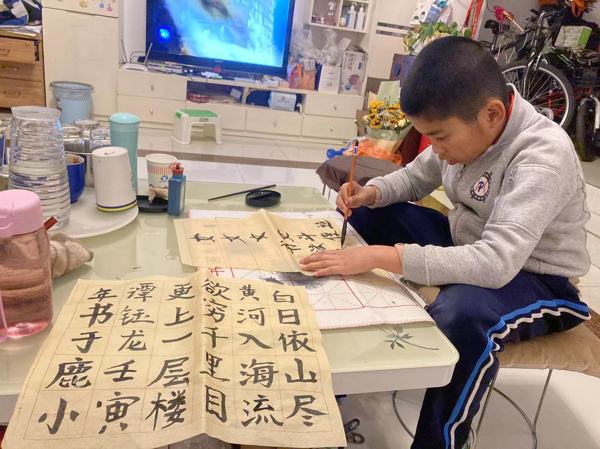 白日依山尽
黄河入海流
欲穷千里目
更上一层楼
谭钰龙壬寅
年书于鹿小